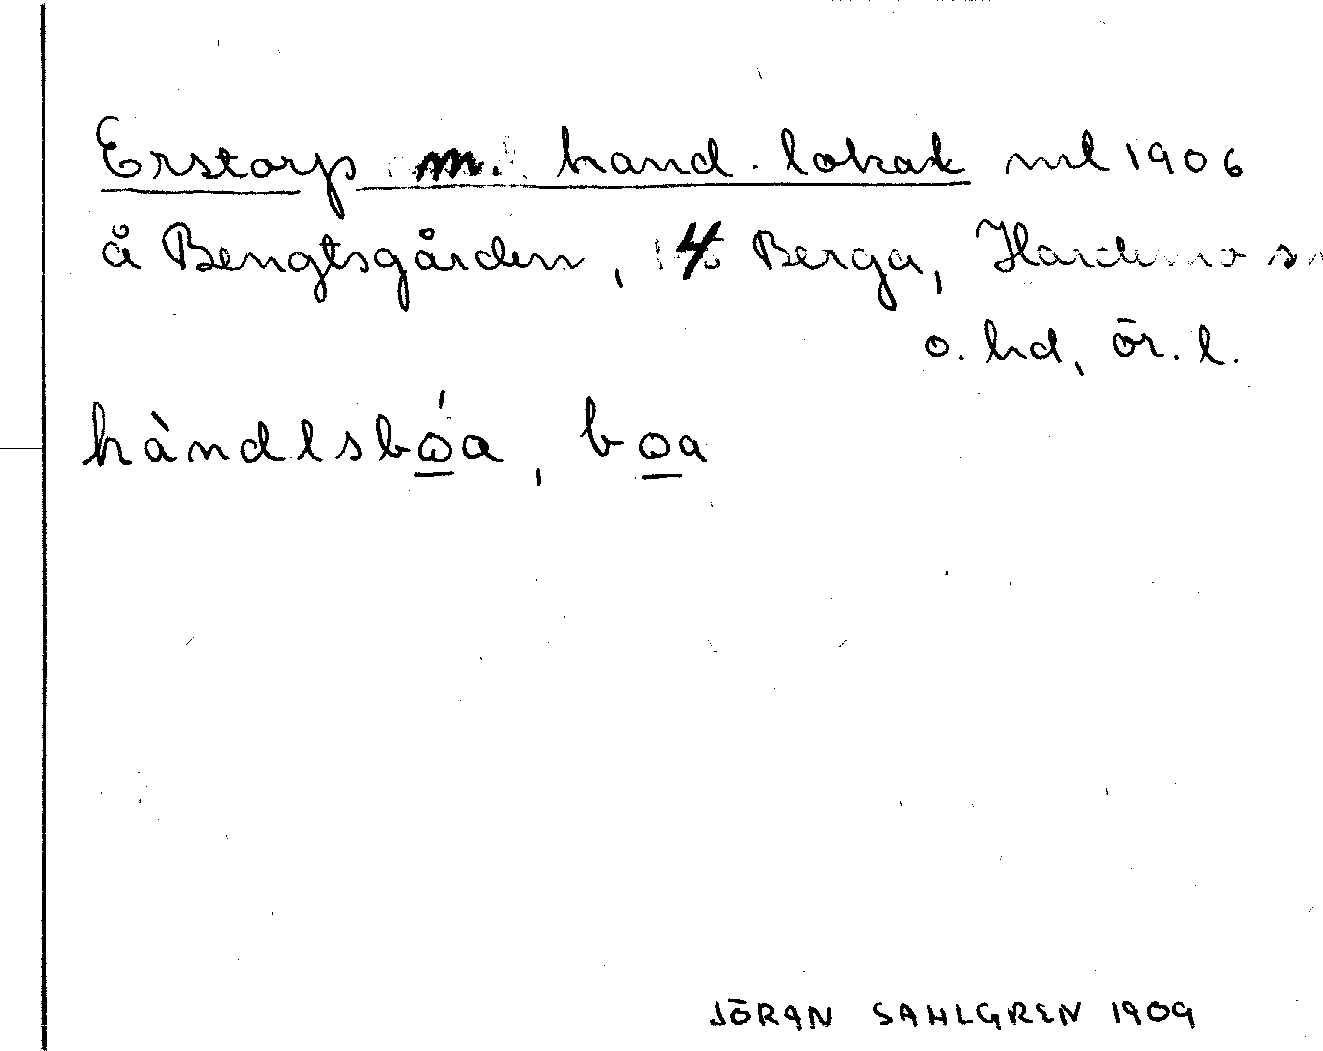 Erstorp m. hand. lokal ml 1906
å Bengtsgården, 4 Berga, Hardemo sn
o. hd, ör. l.
hàndlsbo̲´a, bo̲a
JÖRAN SAHLGREN 1909